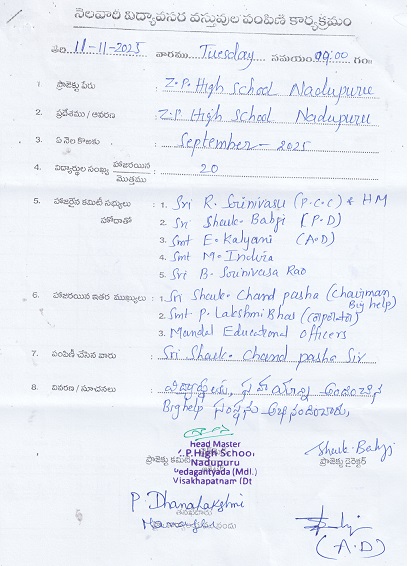 నెలవారీ విద్యావసర వస్తువుల పంపిణీ కార్యక్రమం
తేది. 11-11-2025 వారము Tuesday సమయం 09:00 గం॥
1. ప్రాజెక్టు పేరు : Z.P. High School Nadupuru
2. ప్రదేశము / ఆవరణ : Z.P High School Nadupuru
3. ఏ నెల కొరకు : September - 2025
4. విద్యార్థుల సంఖ్య హాజరయిన / మొత్తము : 20
5. హాజరైన కమిటీ సభ్యులు : 1. Sri R. Srinivasu (P.C.C) & HM
హోదాతో 2. Sri Shaik-Babji (P.D)
3. Smt E. Kalyani (A.D)
4. Smt M. Indira
5. Sri B. Srinivasa Rao
6. హాజరయిన ఇతర ముఖ్యులు : 1. Sri Shaik-Chand pasha (Chairman Big help)
2. Smt. P. Lakshmi Bhai (Corporator)
3. Mandal Educational officers
7. పంపిణీ చేసిన వారు : Sri Shaik-Chand pasha Sir
8. వివరణ / సూచనలు :
Big help సంస్థను
Head Master
Z.P.High School
ప్రాజెక్టు కమిటీ
Nadupuru
Pedagantyada (Mdl.)
Visakhapatnam (Dt
Shaik-Babji
ప్రాజెక్టు డైరెక్టర్
P Dhanalakshmi
(A.D)